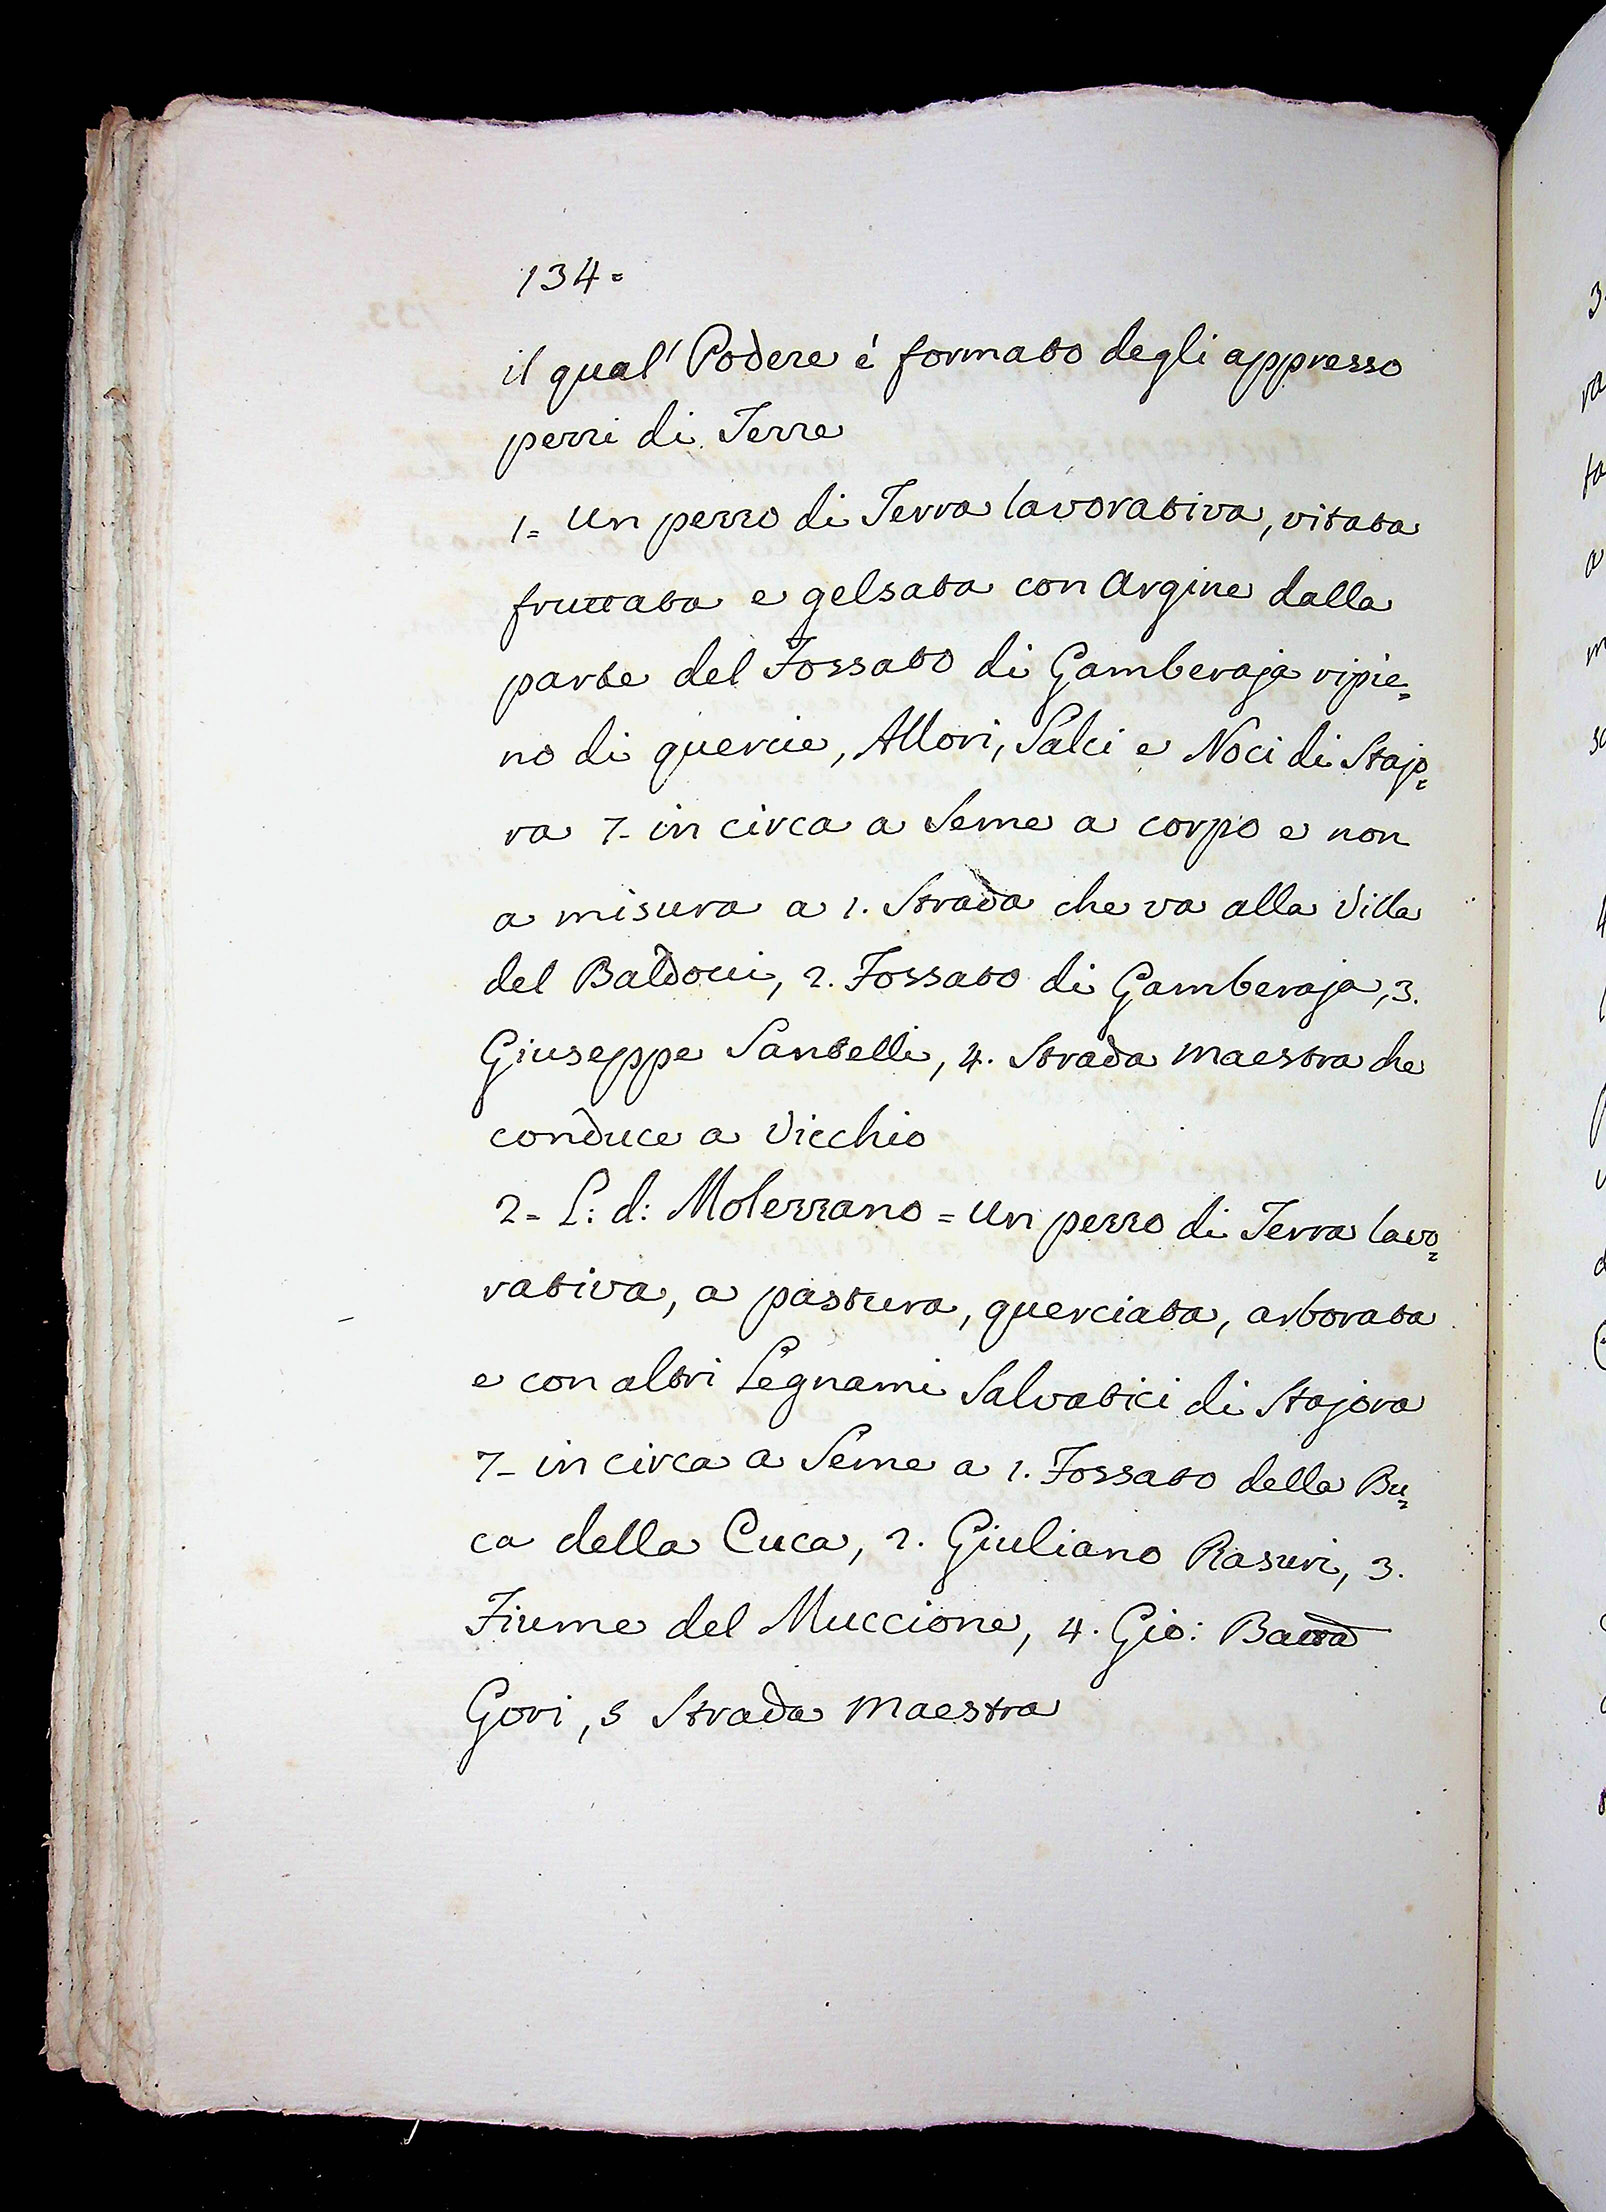 134=
il qual' Podere è formato degli appresso
pezzi di Terre
1= Un pezzo di Terra lavorativa, vitata
fruttata e gelsata con Argine dalla
parte del Fossato di Gamberaja ripie=
no di quercie, Allori, Salci e Noci di Stajo=
ra 7- in circa a Seme a corpo e non
a misura a 1. Strada che va alla Villa
del Baldocci, 2. Fossato di Gamberaja, 3.
Giuseppe Santelli, 4. Strada maestra che
conduce a Vicchio
2= L: d: Molezzano = Un pezzo di Terra lavo=
rativa, a pastura, querciata, arborata
e con altri Legnami Salvatici di Stajora
7- in circa a Seme a 1. Fossato della Bu=
ca della Cuca, 2. Giuliano Rasuri, 3.
Fiume del Muccione, 4. Gio: Batta
Gori, 5 Strada maestra